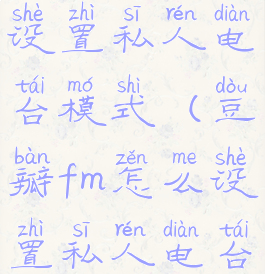 shè zhì sī rén diàn
设置私人电
tái mó shì dòu
台模式(豆
bàn zěn me shè
瓣fm怎么设
zhì sī rén diàn tái
置私人电台